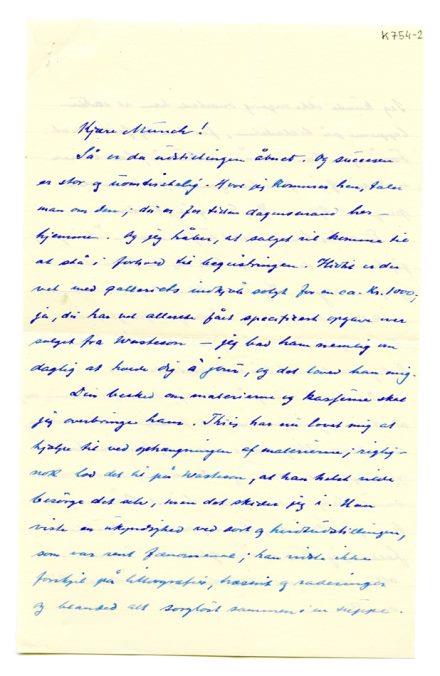 K754-2
Kjære Munch!
Så er da udstillingen åbnet. Og succesen
er stor og uomtvistelig. Hvor jeg kommer hen, taler
man om den; du er for tiden dagens mand her
hjemme. Og jeg håber, at salget vil komme til
at stå i forhold til begeistringen. Hidtil er der
vel med galleriets indkjøb solgt for en ca. Kr. 1000;
ja, du har vel allerede fået specificeret opgave over
salget fra Wasteson — jeg bad ham nemlig om
daglig at holde dig à jour, og det loved han mig.
Din besked om malerierne og kasserne skal
jeg overbringe ham. Thiis har nu lovet mig at
hjælpe til ved ophængningen af malerierne; rigtig-
nok lod det til på Wasteson, at han helst vilde
besørge det selv, men det skider jeg i. Han
viste en ukyndighed ved sort og hvidtudstillingen,
som var rent fænomenal; han vidste ikke
forskjel på lithografier, træsnit og raderinger
og blanded alt sorgløst sammen i en suppe.